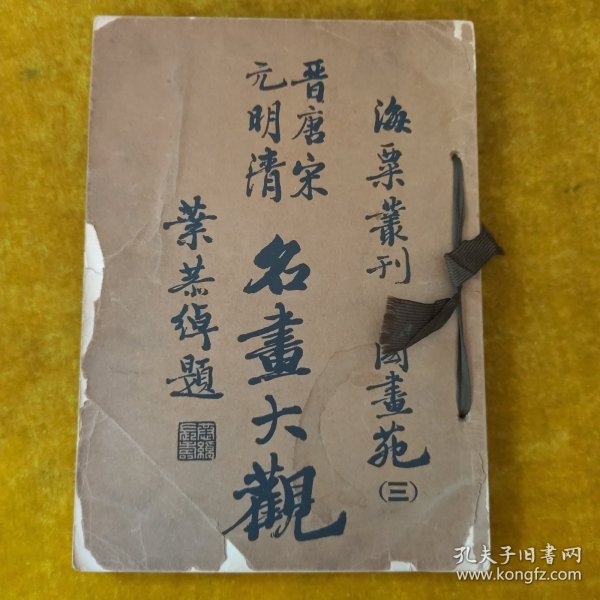 海粟叢刊 國畫苑(三)
晋唐宋
元明清
名畫大觀
葉恭綽題
孔夫子旧書网
www.kongfz.com